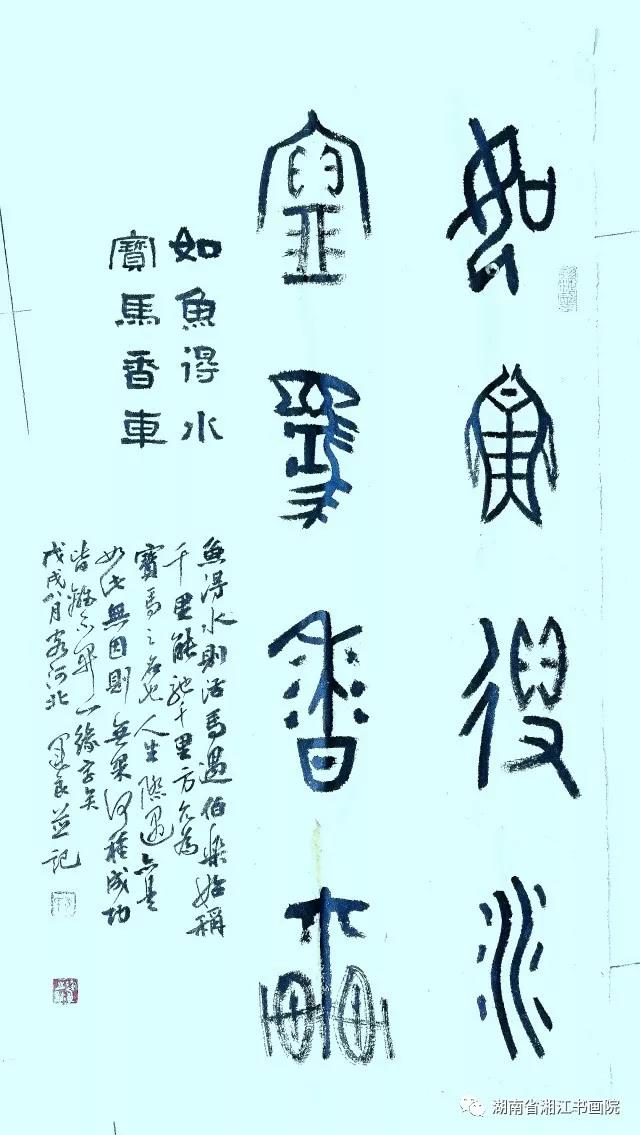 如魚得水
寶馬香車
如魚得水
寶馬香車
魚得水則活馬遇伯樂始稱
千里能馳千里方為
寶馬之名也人生際遇亦是
如此無因則無果何種成功
皆離不開一緣字矣
戊戌八月客河北 良並記
湖南省湘江书画院